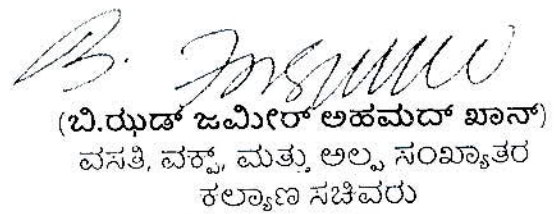 (ಬಿ.ಝಡ್ ಜಮೀರ್ ಅಹಮದ್ ಖಾನ್)
ವಸತಿ, ವಕ್ಫ್, ಮತ್ತು ಅಲ್ಪ ಸಂಖ್ಯಾತರ
ಕಲ್ಯಾಣ ಸಚಿವರು